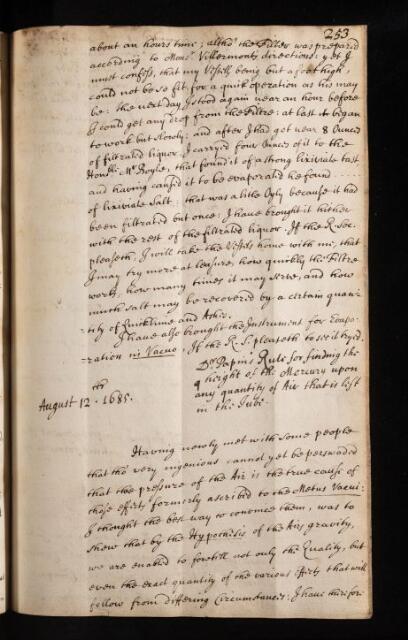 253
about an hours time; altho' the Filter was prepared
according to Mons.r Villermonts directions: yet I
must confess, that my Vessells being but a foot high,
could not be so fit for a quik operation as his may
be: the next day I stood again near an hour before
I could get any drop from the Filtre: at last it began
to work but slowly: and after I had got near 8 Ounces
of filtrated liquor I carryed four Ounces of it to the
Hon.ble M.r Boyle, that found it of a strong lixiviate tast
and having caused it to be evaporated he found
of lixiviate Salt: that was a litle Ogly because it had
been filtrated but once: I have brought it hither
with the rest of the filtrated liquor. If the R. Soc.
pleaseth, I will take the Vessels home with me, that
I may try more at leasure, how quickly the Filtre
works, how many times it may serve, and how
much salt may be recovered by a certain quan-
-tity of Quicklime and Ashes.
I have also brought the Instrument for Evapo-
-ration in Vacuo. If the R. S. pleaseth to see it tryed.
D.r Papins Rule for finding the
height of the Mercury upon
any quantity of Air that is left
in the Tube.
August 12th. 1685.
Having newly met with some people
that tho' very ingenious cannot yet be perswaded
that the pressure of the Air is the true cause of
those effects formerly ascribed to the Metus Vacui:
I thought the best way to convince them, was to
shew that by the Hypothesis of the Airs gravity,
we are enabled to foretell not only the Quality, but
even the exact quantity of the various effects that will
follow from differing Circumstances: I have therefore